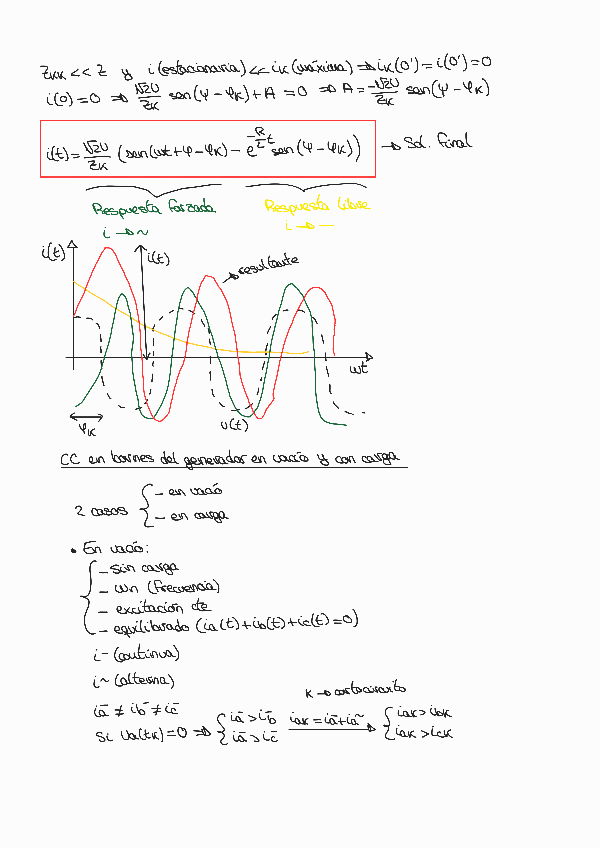 Zкк << Z y i(estacionaria) << iк(máxima) ⇒ iк(0⁺) = i(0⁺) = 0
i(0) = 0 ⇒ √2U/Zк sen(ψ − φк) + A = 0 ⇒ A = −√2U/Zк sen(ψ − φк)
i(t) = √2U/Zк (sen(wt + ψ − φк) − e^(−R/L t) sen(ψ − φк)) → Sol. final
Respuesta forzada Respuesta libre
i → ~ i → —
i(t) i(t) resultante
wt
φк u(t)
CC en bornes del generador en vacío y con carga
2 casos { – en vacío
– en carga
• En vacío:
– sin carga
– wn (frecuencia)
– excitación cte
– equilibrado (ia(t) + ib(t) + ic(t) = 0)
i– (continua)
i~ (alterna)
к → cortocircuito
ia– ≠ ib– ≠ ic–
Si ua(tк) = 0 ⇒ { ia– > ib– iaк = ia– + ia~ → { iaк > ibк
ia– > ic– iaк > icк